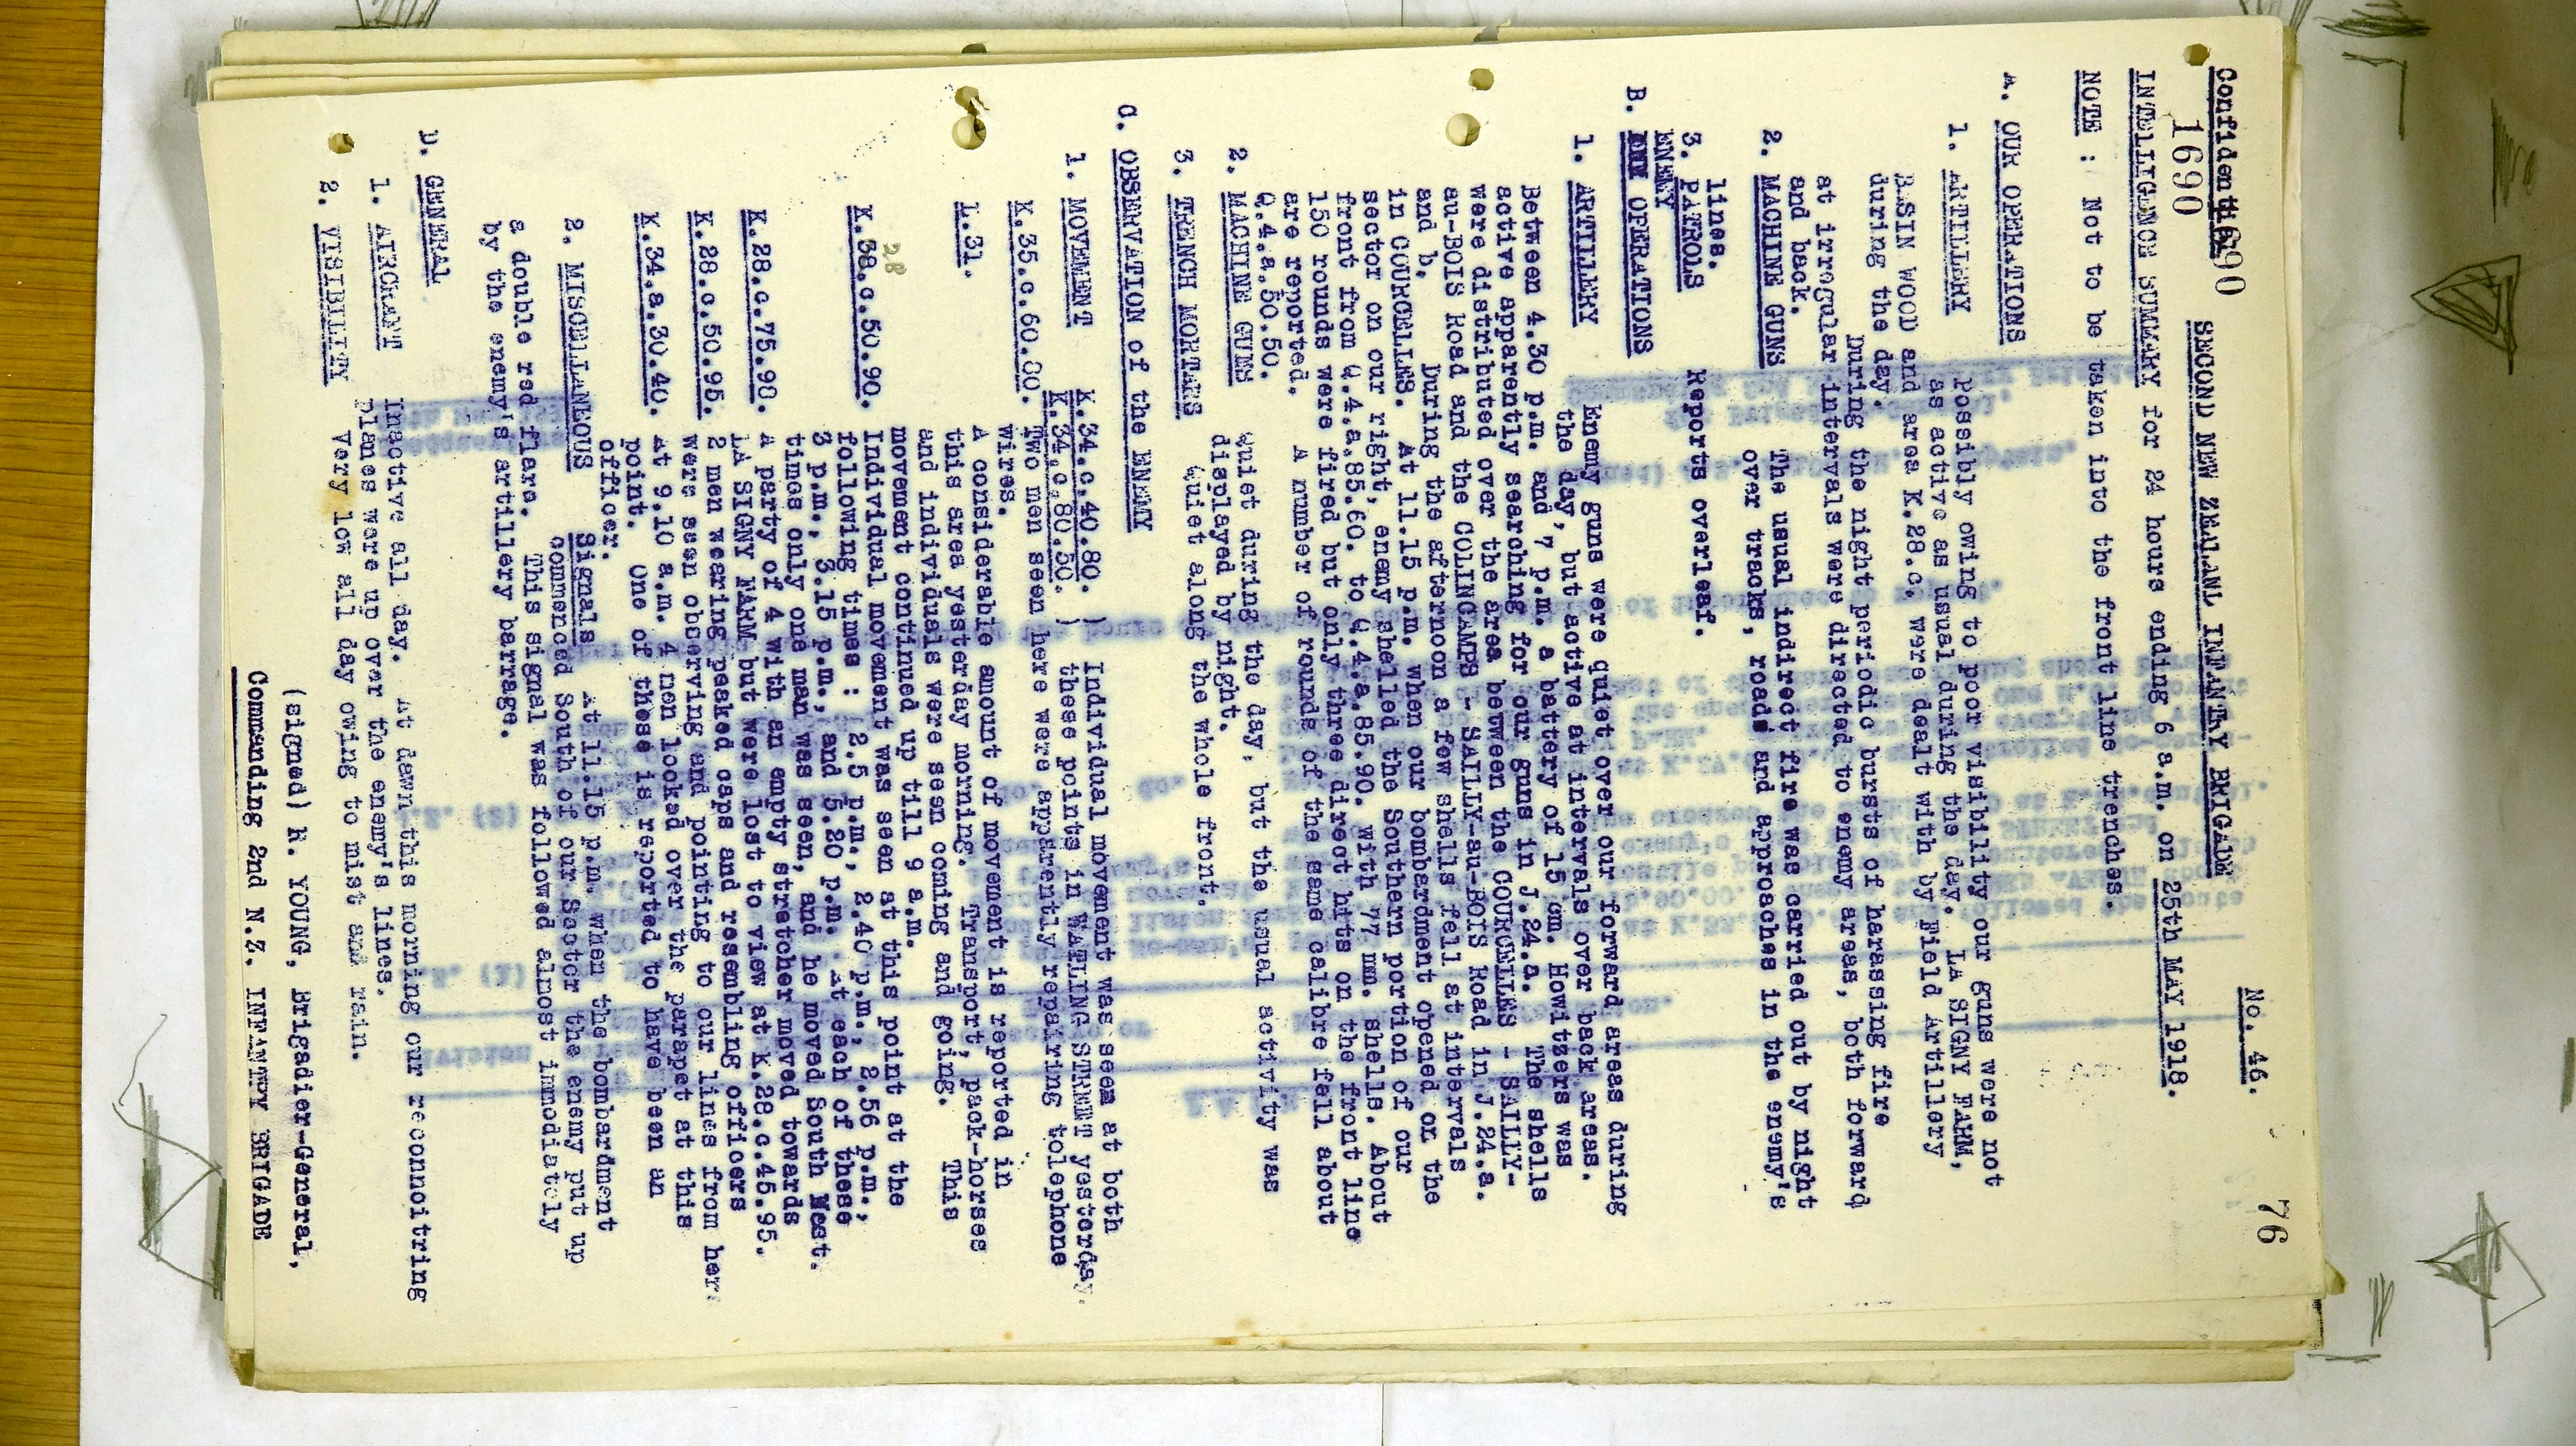 76
Confidential
1690
1690
No. 46.
SECOND NEW ZEALAND INFANTRY BRIGADE
INTELLIGENCE SUMMARY for 24 hours ending 6 a.m. on 25th MAY 1918.
NOTE : Not to be taken into the front line trenches.
A. OUR OPERATIONS
1. ARTILLERY Possibly owing to poor visibility our guns were not
as active as usual during the day. LA SIGNY FARM,
BASIN WOOD and area K.28.c. were dealt with by Field Artillery
during the day.
During the night periodic bursts of harassing fire
at irregular intervals were directed to enemy areas, both forward
and back.
2. MACHINE GUNS The usual indirect fire was carried out by night
over tracks, roads and approaches in the enemy's
lines.
3. PATROLS Reports overleaf.
ENEMY
B. OUR OPERATIONS
1. ARTILLERY Enemy guns were quiet over our forward areas during
the day, but active at intervals over back areas.
Between 4.30 p.m. and 7 p.m. a battery of 15 cm. Howitzers was
active apparently searching for our guns in J.24.a. The shells
were distributed over the area between the COURCELLES - SAILLY-
au-BOIS Road and the COLINCAMPS - SAILLY-au-BOIS Road in J.24.a.
and b. During the afternoon a few shells fell at intervals
in COURCELLES. At 11.15 p.m. when our bombardment opened on the
sector on our right, enemy shelled the Southern portion of our
front from Q.4.a.85.60. to Q.4.a.85.90. with 77 mm. shells. About
150 rounds were fired but only three direct hits on the front line
are reported. A number of rounds of the same calibre fell about
Q.4.a.50.50.
2. MACHINE GUNS Quiet during the day, but the usual activity was
displayed by night.
3. TRENCH MORTARS Quiet along the whole front.
C. OBSERVATION of the ENEMY
1. MOVEMENT K.34.c.40.80. ) Individual movement was seem at both
K.34.c.80.50. ) these points in WATLING STREET yesterday.
K.35.c.60.00. Two men seen here were apparently repairing telephone
wires.
L.31. A considerable amount of movement is reported in
this area yesterday morning. Transport, pack-horses
and individuals were seen coming and going. This
movement continued up till 9 a.m.
28
K.38.c.50.90. Individual movement was seen at this point at the
following times : 2.5 p.m., 2.40 p.m., 2.56 p.m.,
3 p.m., 3.15 p.m., and 5.20 p.m. At each of these
times only one man was seen, and he moved South West.
K.28.c.75.90. A party of 4 with an empty stretcher moved towards
LA SIGNY FARM but were lost to view at K.28.c.45.95.
K.28.c.50.95. 2 men wearing peaked caps and resembling officers
were seen observing and pointing to our lines from here
K.34.a.30.40. At 9.10 a.m. 4 men looked over the parapet at this
point. One of these is reported to have been an
officer.
2. MISCELLANEOUS Signals At 11.15 p.m. when the bombardment
commenced South of our Sector the enemy put up
a double red flare. This signal was followed almost immediately
by the enemy's artillery barrage.
D. GENERAL
1. AIRCRAFT Inactive all day. At dawn this morning our reconnoitring
planes were up over the enemy's lines.
2. VISIBILITY Very low all day owing to mist and rain.
(signed) R. YOUNG, Brigadier-General,
Commanding 2nd N.Z. INFANTRY BRIGADE